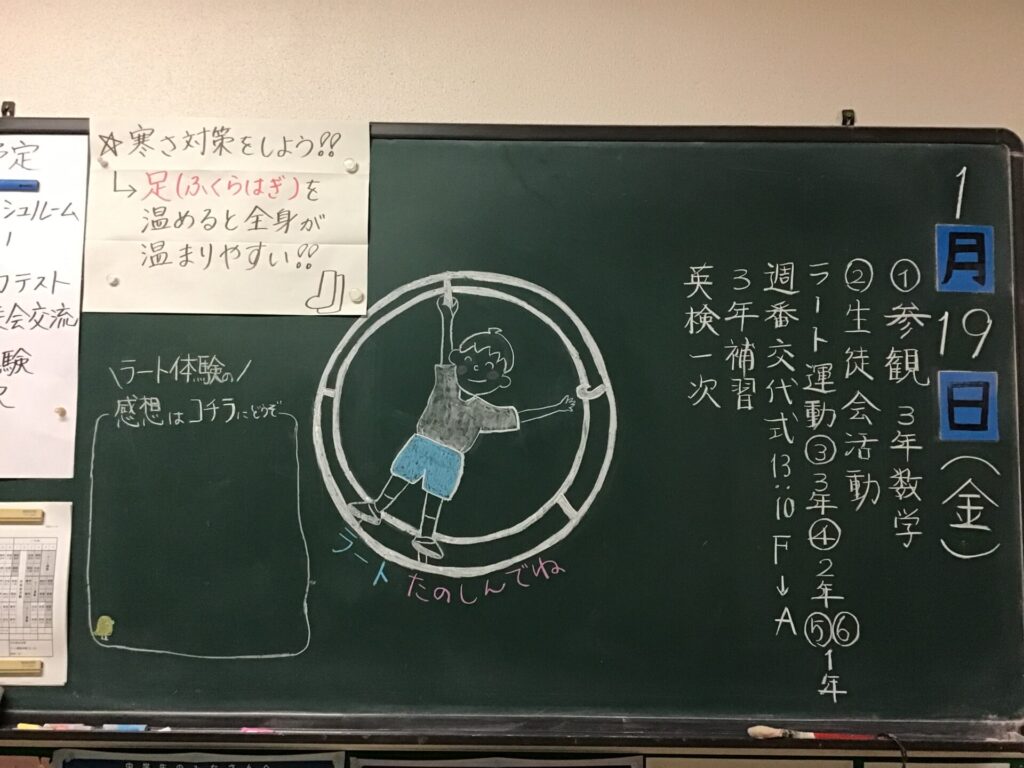 1月19日(金)
①参観 3年数学
②生徒会活動
ラート運動③3年④2年⑤⑥1年
週番交代式 13:10 F→A
3年補習
英検一次
☆寒さ対策をしよう!!
↳足(ふくらはぎ)を
温めると全身が
温まりやすい!!
\ラート体験の/
感想はコチラにどうぞ
ラート たのしんでね
予定
テスト
会交流
験